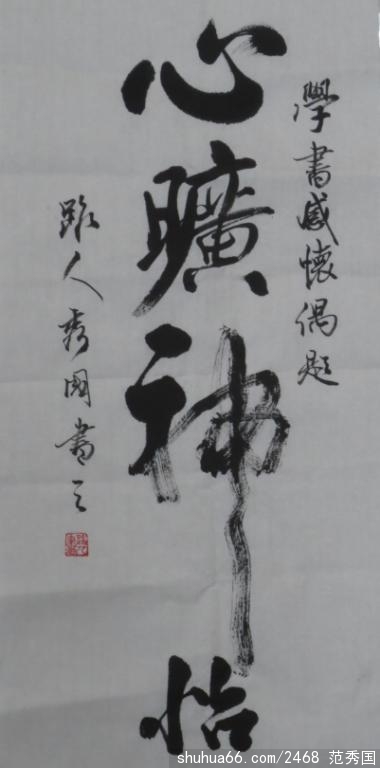 學書感懷偶題
心曠神怡
路人秀國書之
shuhua66.com/2468 范秀国